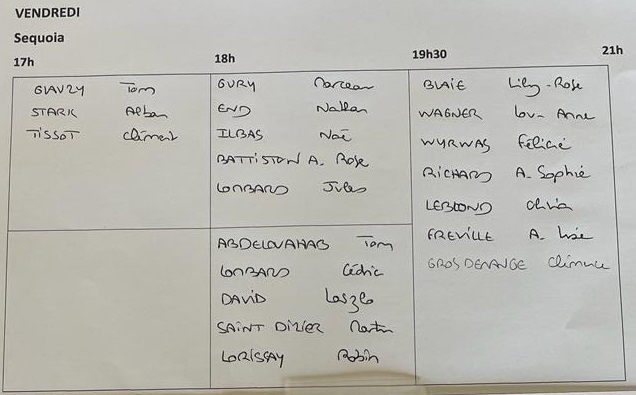 VENDREDI
Sequoia
17h 18h 19h30 21h
GIAVZY Tom
STARK Alban
TISSOT Clément
GURY Marceau
END Nathan
ILBAS Noé
BATTISTON A. Rose
LOMBARD Jules
ABDELOUAHAB Tom
LOMBARD Cédric
DAVID Laszlo
SAINT DIZIER Martin
LORISSAY Robin
BLAIE Lily-Rose
WAGNER Lou-Anne
WYRWAS Félicie
RICHARD A. Sophie
LEBLOND Olivia
FREVILLE A. Lise
GROSDEMANGE Clémence